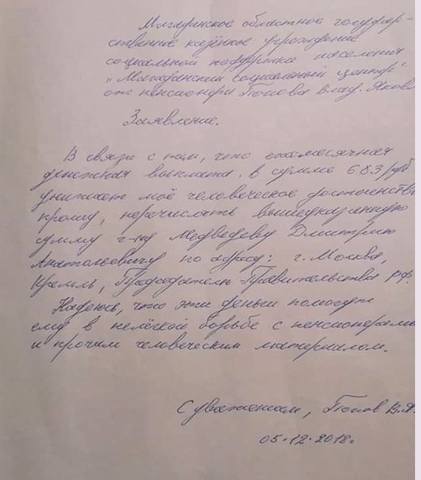 Магаданское областное государ-
ственное казённое учреждение
социальной поддержки населения
"Магаданский социальный центр"
от пенсионера Попова Влад. Яков
Заявление.
В связи с тем, что ежемесячная
денежная выплата в сумме 683 руб
унижает моё человеческое достоинство
прошу, перечислять вышеуказанную
сумму г-ну Медведеву Дмитрию
Анатольевичу по адресу: г. Москва,
Кремль, Председателю Правительства РФ.
Надеюсь, что эти деньги помогут
ему в нелёгкой борьбе с пенсионерами
и прочим человеческим материалом.
С уважением, Попов В.Я.
05.12.2018г.